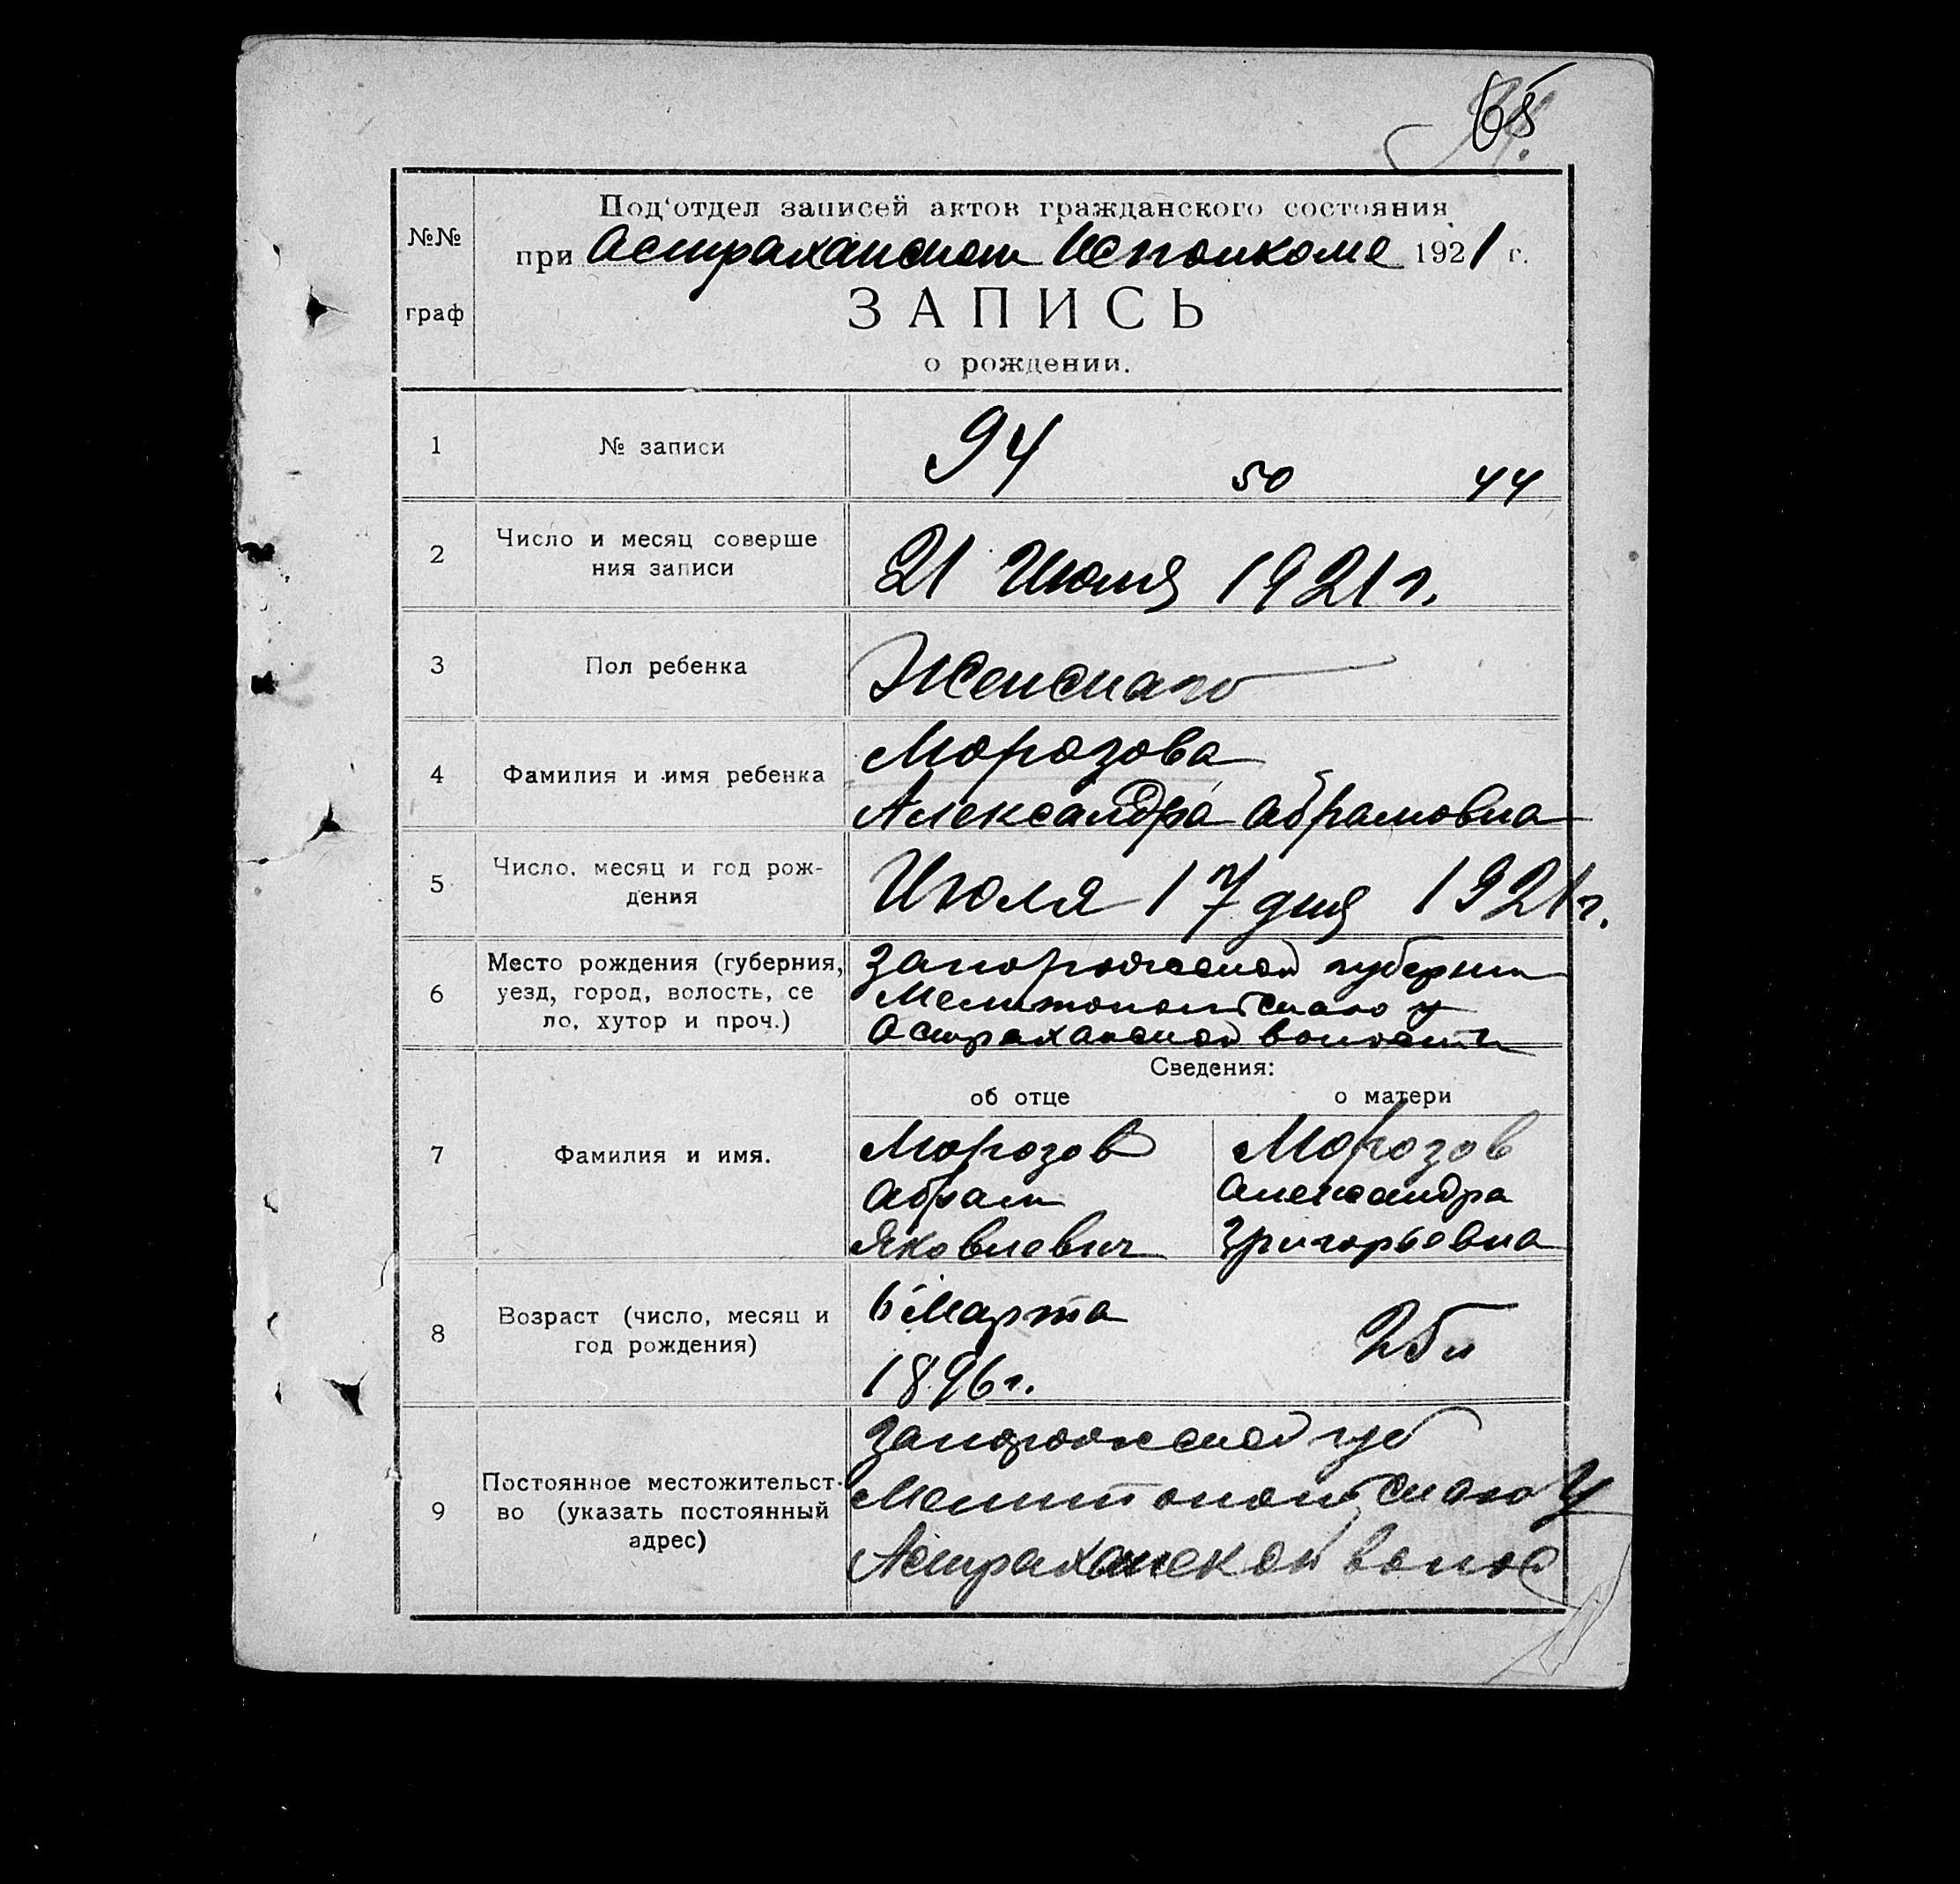 65
№№
граф
Под'отдел записей актов гражданского состояния
при Астраханском Исполкоме 1921 г.
ЗАПИСЬ
о рождении.
1 № записи 94 50 44
2 Число и месяц соверше
ния записи
21 Июля 1921 г.
3 Пол ребенка Женскаго
4 Фамилия и имя ребенка
Морозова
Александра Абрамовна
5 Число, месяц и год рож-
дения
Июля 17 дня 1921 г.
6 Место рождения (губерния,
уезд, город, волость, се
ло, хутор и проч.)
Запорожской губернии
Мелитопольскаго у
Астраханской волости
Сведения:
об отце о матери
7 Фамилия и имя.
Морозов
Абрам
Яковлевич
Морозов
Александра
Григорьевна
8 Возраст (число, месяц и
год рождения)
6 Марта
1896 г.
25 л
9 Постоянное местожительст-
во (указать постоянный
адрес)
Запорожской губ
Мелитопольскаго У
Астраханской волос